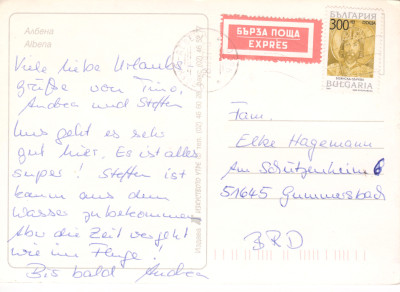 Албена
Albena
Viele liebe Urlaubs
grüße von Timo,
Andrea und Steffen
Uns geht es sehr
gut hier. Es ist alles
super! Steffen ist
kaum aus dem
Wasser zu bekommen.
Aber die Zeit vergeht
wie im Fluge!
Bis bald Andrea
БЪРЗА ПОЩА
EXPRES
БЪЛГАРИЯ
300
BULGARIA
Fam.
Elke Hagemann
Am Schützenheim 6
51645 Gummersbach
BRD